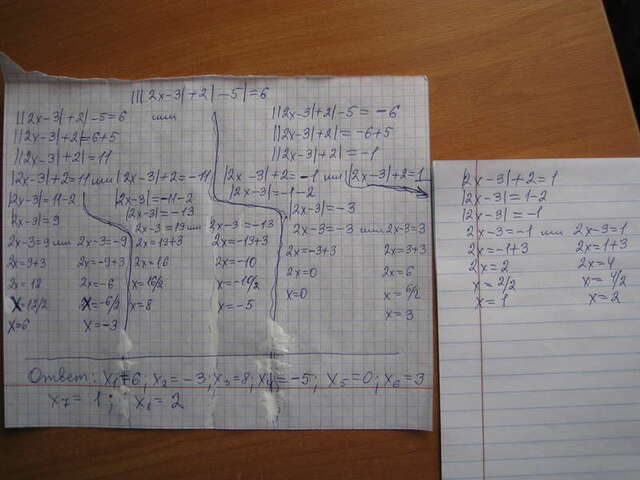 |||2x-3|+2|-5|=6
||2x-3|+2|-5=6 или ||2x-3|+2|-5=-6
||2x-3|+2|=6+5 ||2x-3|+2|=-6+5
||2x-3|+2|=11 ||2x-3|+2|=-1
|2x-3|+2=11 или |2x-3|+2=-11 |2x-3|+2=-1 или |2x-3|+2=1
|2x-3|=11-2 |2x-3|=-11-2 |2x-3|=-1-2
|2x-3|=9 |2x-3|=-13 |2x-3|=-3
2x-3=9 или 2x-3=-9 2x-3=13 или 2x-3=-13 2x-3=-3 или 2x-3=3
2x=9+3 2x=-9+3 2x=13+3 2x=-13+3 2x=-3+3 2x=3+3
2x=12 2x=-6 2x=16 2x=-10 2x=0 2x=6
x=12/2 x=-6/2 x=16/2 x=-10/2 x=0 x=6/2
x=6 x=-3 x=8 x=-5 x=3
Ответ: x1=6; x2=-3; x3=8; x4=-5; x5=0; x6=3
x7=1; x8=2
|2x-3|+2=1
|2x-3|=1-2
|2x-3|=-1
2x-3=-1 или 2x-3=1
2x=-1+3 2x=1+3
2x=2 2x=4
x=2/2 x=4/2
x=1 x=2